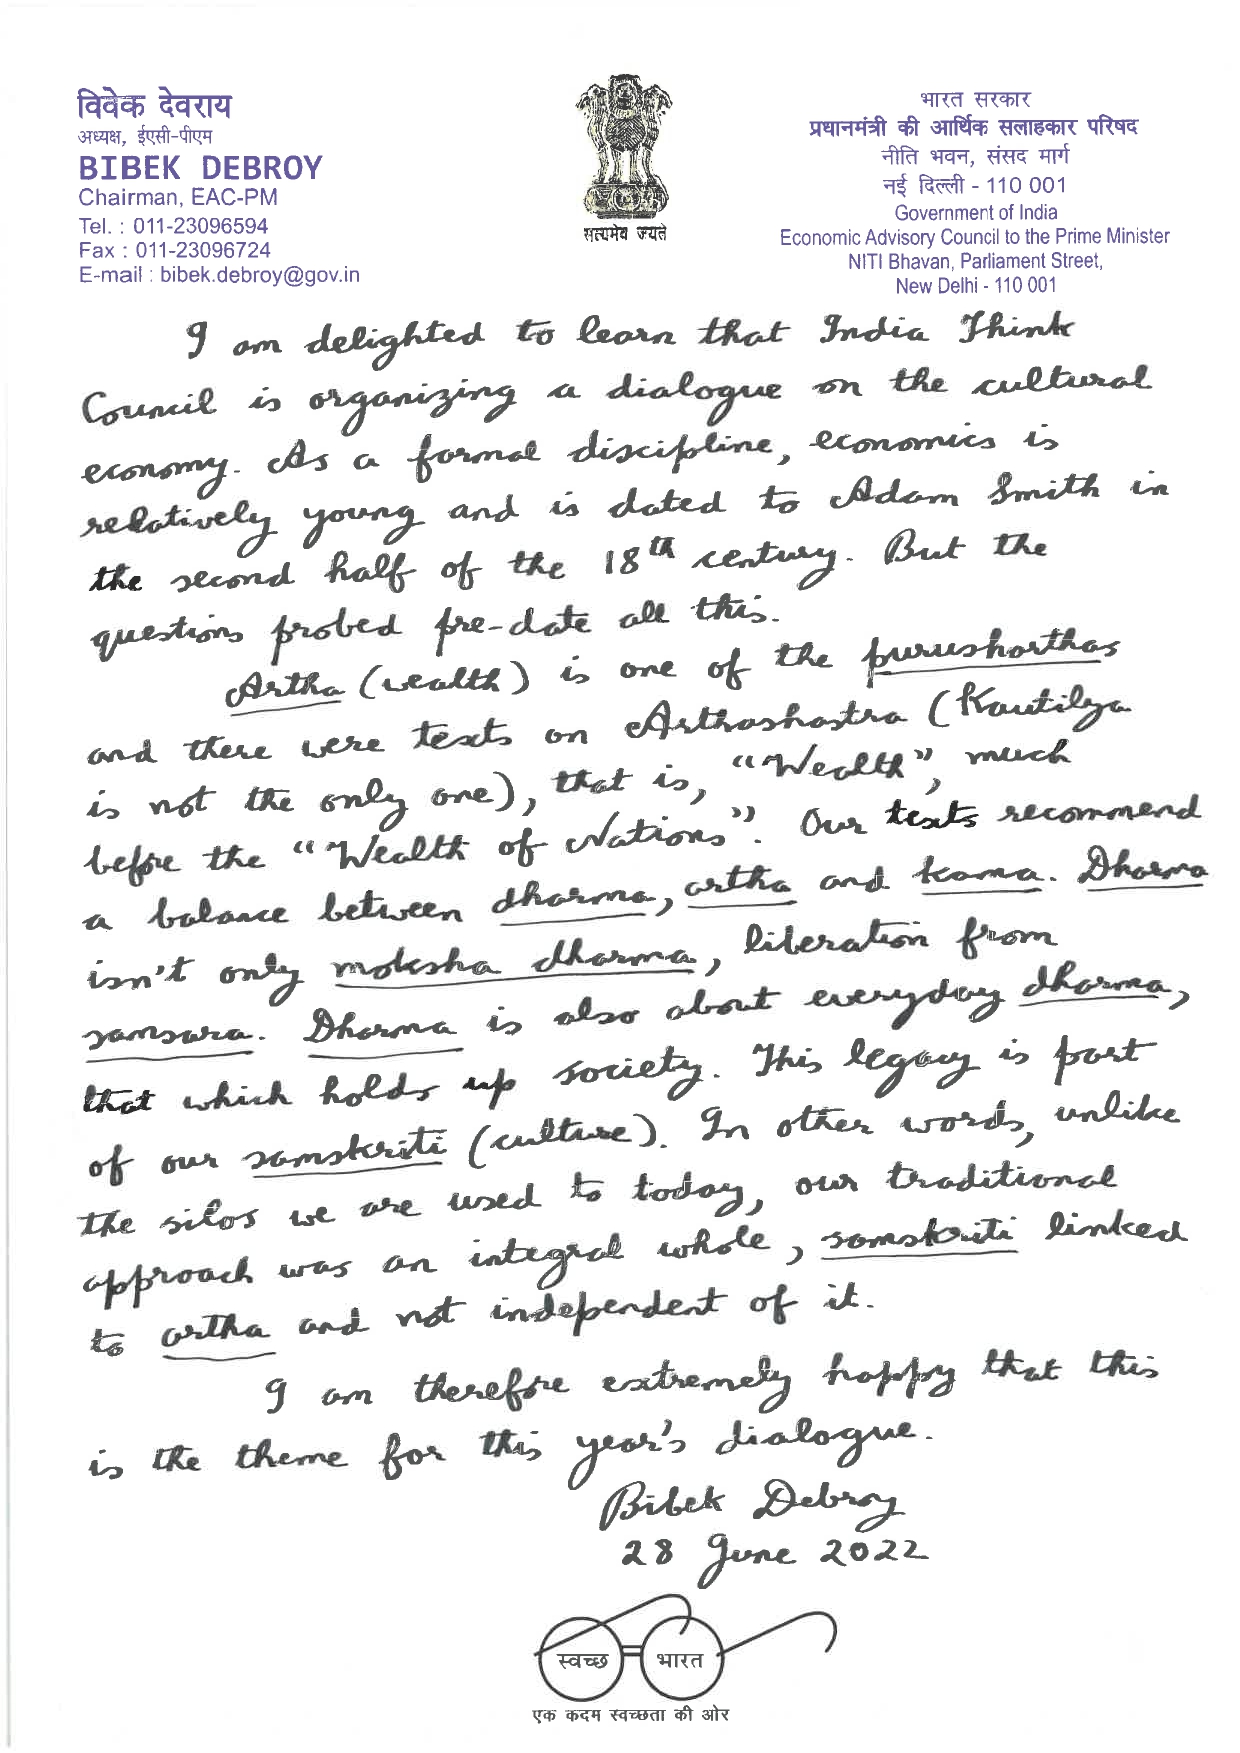 विवेक देवराय
अध्यक्ष, ईएसी-पीएम
BIBEK DEBROY
Chairman, EAC-PM
Tel. : 011-23096594
Fax : 011-23096724
E-mail : bibek.debroy@gov.in
सत्यमेव जयते
भारत सरकार
प्रधानमंत्री की आर्थिक सलाहकार परिषद
नीति भवन, संसद मार्ग
नई दिल्ली - 110 001
Government of India
Economic Advisory Council to the Prime Minister
NITI Bhavan, Parliament Street,
New Delhi - 110 001
I am delighted to learn that India Think
Council is organizing a dialogue on the cultural
economy. As a formal discipline, economics is
relatively young and is dated to Adam Smith in
the second half of the 18th century. But the
questions probed pre-date all this.
Artha (wealth) is one of the purushorthas
and there were texts on Arthashastra (Kautilya
is not the only one), that is, "Wealth", much
before the "Wealth of Nations". Our texts recommend
a balance between dharma, artha and kama. Dharma
isn't only moksha dharma, liberation from
samsara. Dharma is also about everyday dharma,
that which holds up society. This legacy is part
of our samskriti (culture). In other words, unlike
the silos we are used to today, our traditional
approach was an integral whole, samskriti linked
to artha and not independent of it.
I am therefore extremely happy that this
is the theme for this year's dialogue.
Bibek Debroy
28 June 2022
स्वच्छ भारत
एक कदम स्वच्छता की ओर